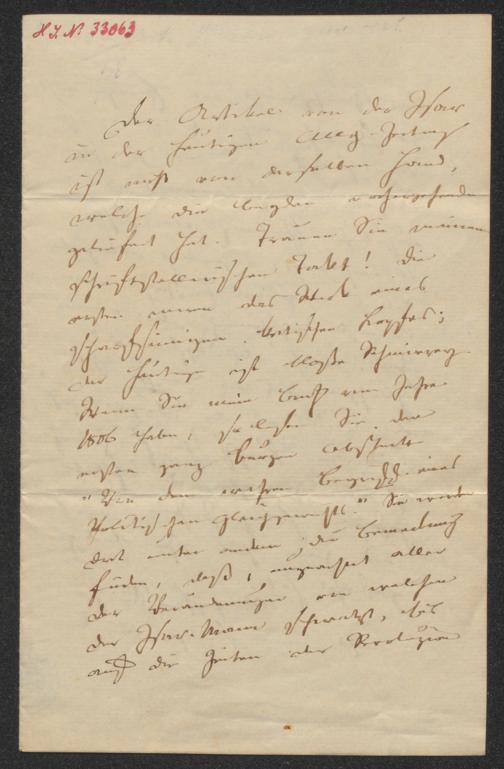 H.I.N. 33063
Der Artikel von der Isar
in der heutigen Allg. Zeitung
ist nicht von derselben Hand,
welche die beyden vorhergehenden
geliefert hat. Trauen Sie meinem
schriftstellerischen Takt! Die
ersten waren das Werk eines
scharfsinnigen kritischen Kopfes;
der heutige ist bloße Schmiererey.
Wenn Sie mein Buch vom Jahre
1806 haben, so lesen Sie den
ersten ganz kurzen Abschnitt
"Von dem wahren Begriff eines
Politischen Gleichgewichts." Sie werden
dort unter andern die Bemerkung
finden, daß, ungeachtet aller
der Veränderungen von welchen
der Isar-Mann schwatzt,
auf die Zeiten der Revolution